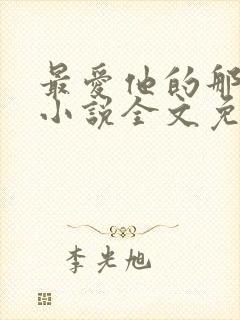 最爱他的那
小説全文免
李光旭